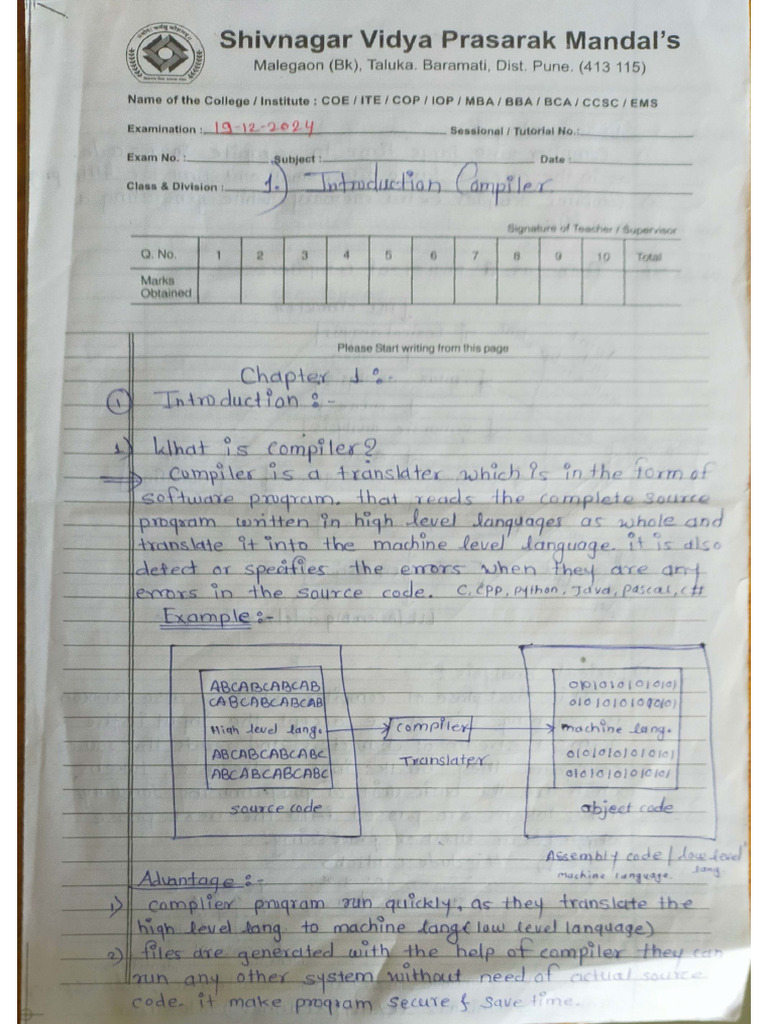 Shivnagar Vidya Prasarak Mandal's
Malegaon (Bk), Taluka. Baramati, Dist. Pune. (413 115)
Name of the College / Institute : COE / ITE / COP / IOP / MBA / BBA / BCA / CCSC / EMS
Examination : 19-12-2024 Sessional / Tutorial No.:
Exam No. : Subject : Date :
Class & Division : 1.) Introduction Compiler
Signature of Teacher / Supervisor
Q. No. 1 2 3 4 5 6 7 8 9 10 Total
Marks Obtained
Please Start writing from this page
Chapter 1 :-
① Introduction :-
1) What is compiler?
⇒ Compiler is a translater which is in the form of
software program. that reads the complete source
program written in high level languages as whole and
translate it into the machine level language. it is also
detect or specifies the errors when they are any
errors in the source code. C, CPP, python, Java, pascal, c#
Example :-
ABCABCABCAB
CABCABCABCAB
High level lang. → compiler → machine lang.
Translater
ABCABCABCABC
ABCABCABCABC
source code
010101010101
010101010101
010101010101
010101010101
object code
Assembly code / low level lang.
machine language
Advantage :-
1) complier program run quickly, as they translate the
high level lang to machine lang (low level language)
2) files are generated with the help of compiler they can
run any other system without need of actual source
code. it make program secure & save time.